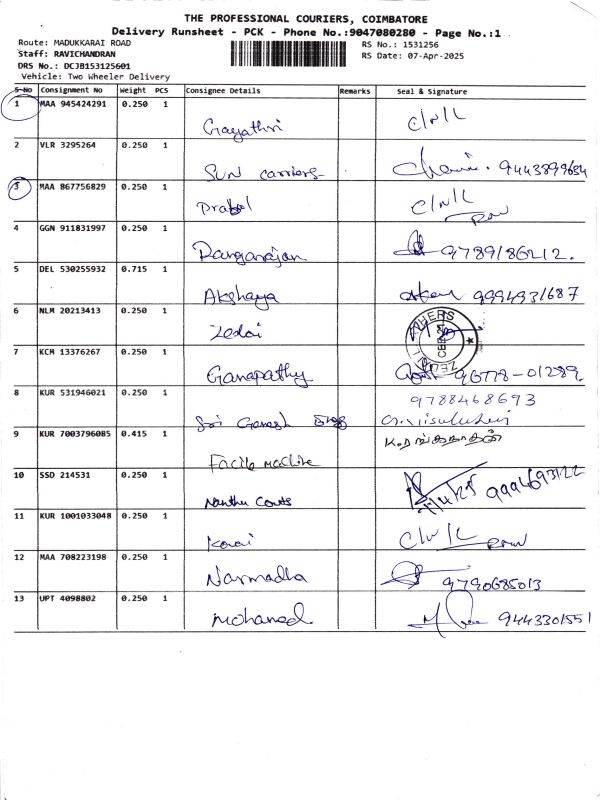 THE PROFESSIONAL COURIERS, COIMBATORE
Delivery Runsheet - PCK - Phone No.:9047080280 - Page No.:1
Route: MADUKKARAI ROAD
Staff: RAVICHANDRAN
DRS No.: DCJB153125601
Vehicle: Two Wheeler Delivery
RS No.: 1531256
RS Date: 07-Apr-2025
S-No Consignment No Weight PCS Consignee Details Remarks Seal & Signature
1 MAA 945424291 0.250 1 Gayathri C/N/L
2 VLR 3295264 0.250 1 SUN carriers
3 MAA 867756829 0.250 1 C/N/L
4 GGN 911831997 0.250 1 Rangarajan 9789186212.
5 DEL 530255932 0.715 1 Akshaya 9994931687
6 NLM 20213413 0.250 1
7 KCM 13376267 0.250 1 Ganapathy 96778-01289
8 KUR 531946021 0.250 1 Sri Ganesh 9788468693
9 KUR 7003796085 0.415 1 Facile machine
10 SSD 214531 0.250 1 9994693122
11 KUR 1001033048 0.250 1 Kovai
12 MAA 708223198 0.250 1 Narmadha 9790685013
13 UPT 4098802 0.250 1 Mohamed 9443301551